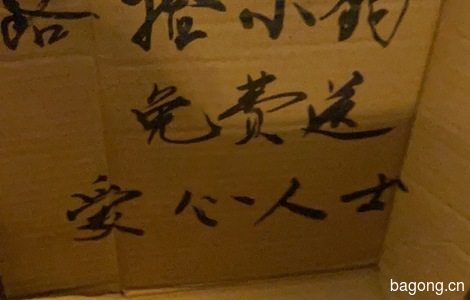 路捡小狗
免费送
爱心人士
bagong.cn